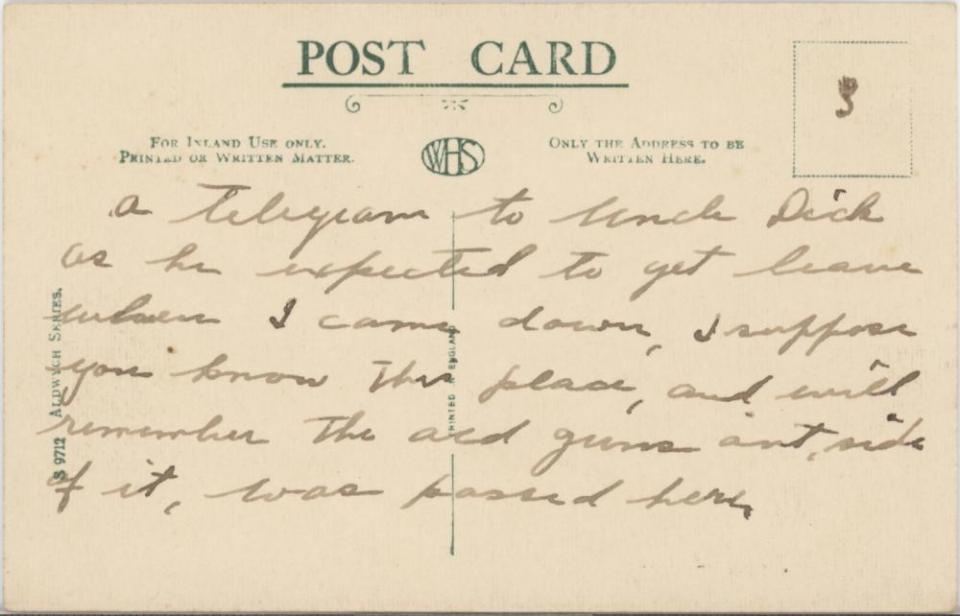 POST CARD
FOR INLAND USE ONLY.
PRINTED OR WRITTEN MATTER.
WHS
ONLY THE ADDRESS TO BE
WRITTEN HERE.
3
a Telegram to Uncle Dick
as he expected to get leave
when I came down, I suppose
you know this place, and will
remember the old guns out, side
of it, was passed here,
S 9712 ALDWYCH SERIES.
PRINTED IN ENGLAND